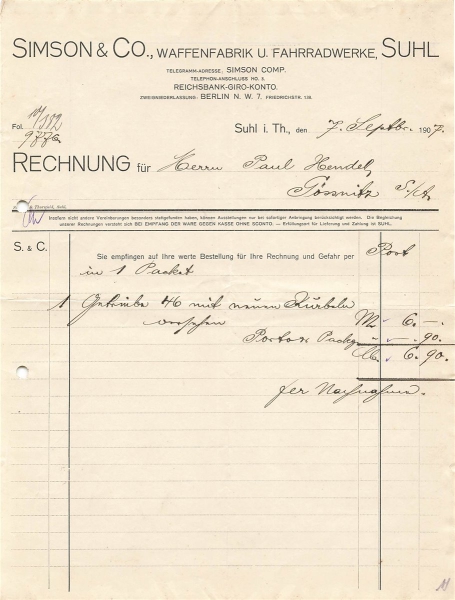 SIMSON & CO., WAFFENFABRIK U. FAHRRADWERKE, SUHL
TELEGRAMM-ADRESSE: SIMSON COMP.
TELEPHON-ANSCHLUSS NO. 3.
REICHSBANK-GIRO-KONTO.
ZWEIGNIEDERLASSUNG: BERLIN N.W. 7. FRIEDRICHSTR.
Fol.
Suhl i. Th., den 7. Septbr. 1907.
RECHNUNG für Herrn Paul Hendel,
Gössnitz S/A.
Insofern nicht andere Vereinbarungen besonders stattgefunden haben, können Ausstellungen nur bei sofortiger Anbringung berücksichtigt werden. Die Begleichung
unserer Rechnungen versteht sich BEI EMPFANG DER WARE GEGEN KASSE OHNE SCONTO. — Erfüllungsort für Lieferung und Zahlung ist SUHL.
S. & C.
Sie empfingen auf Ihre werte Bestellung für Ihre Rechnung und Gefahr per Post
in 1 Packet
1 Getriebe 46 mit neuen Kurbeln
versehen M. 6. —
Porto & Packg „ —. 90.
M. 6. 90.
per Nachnahme.